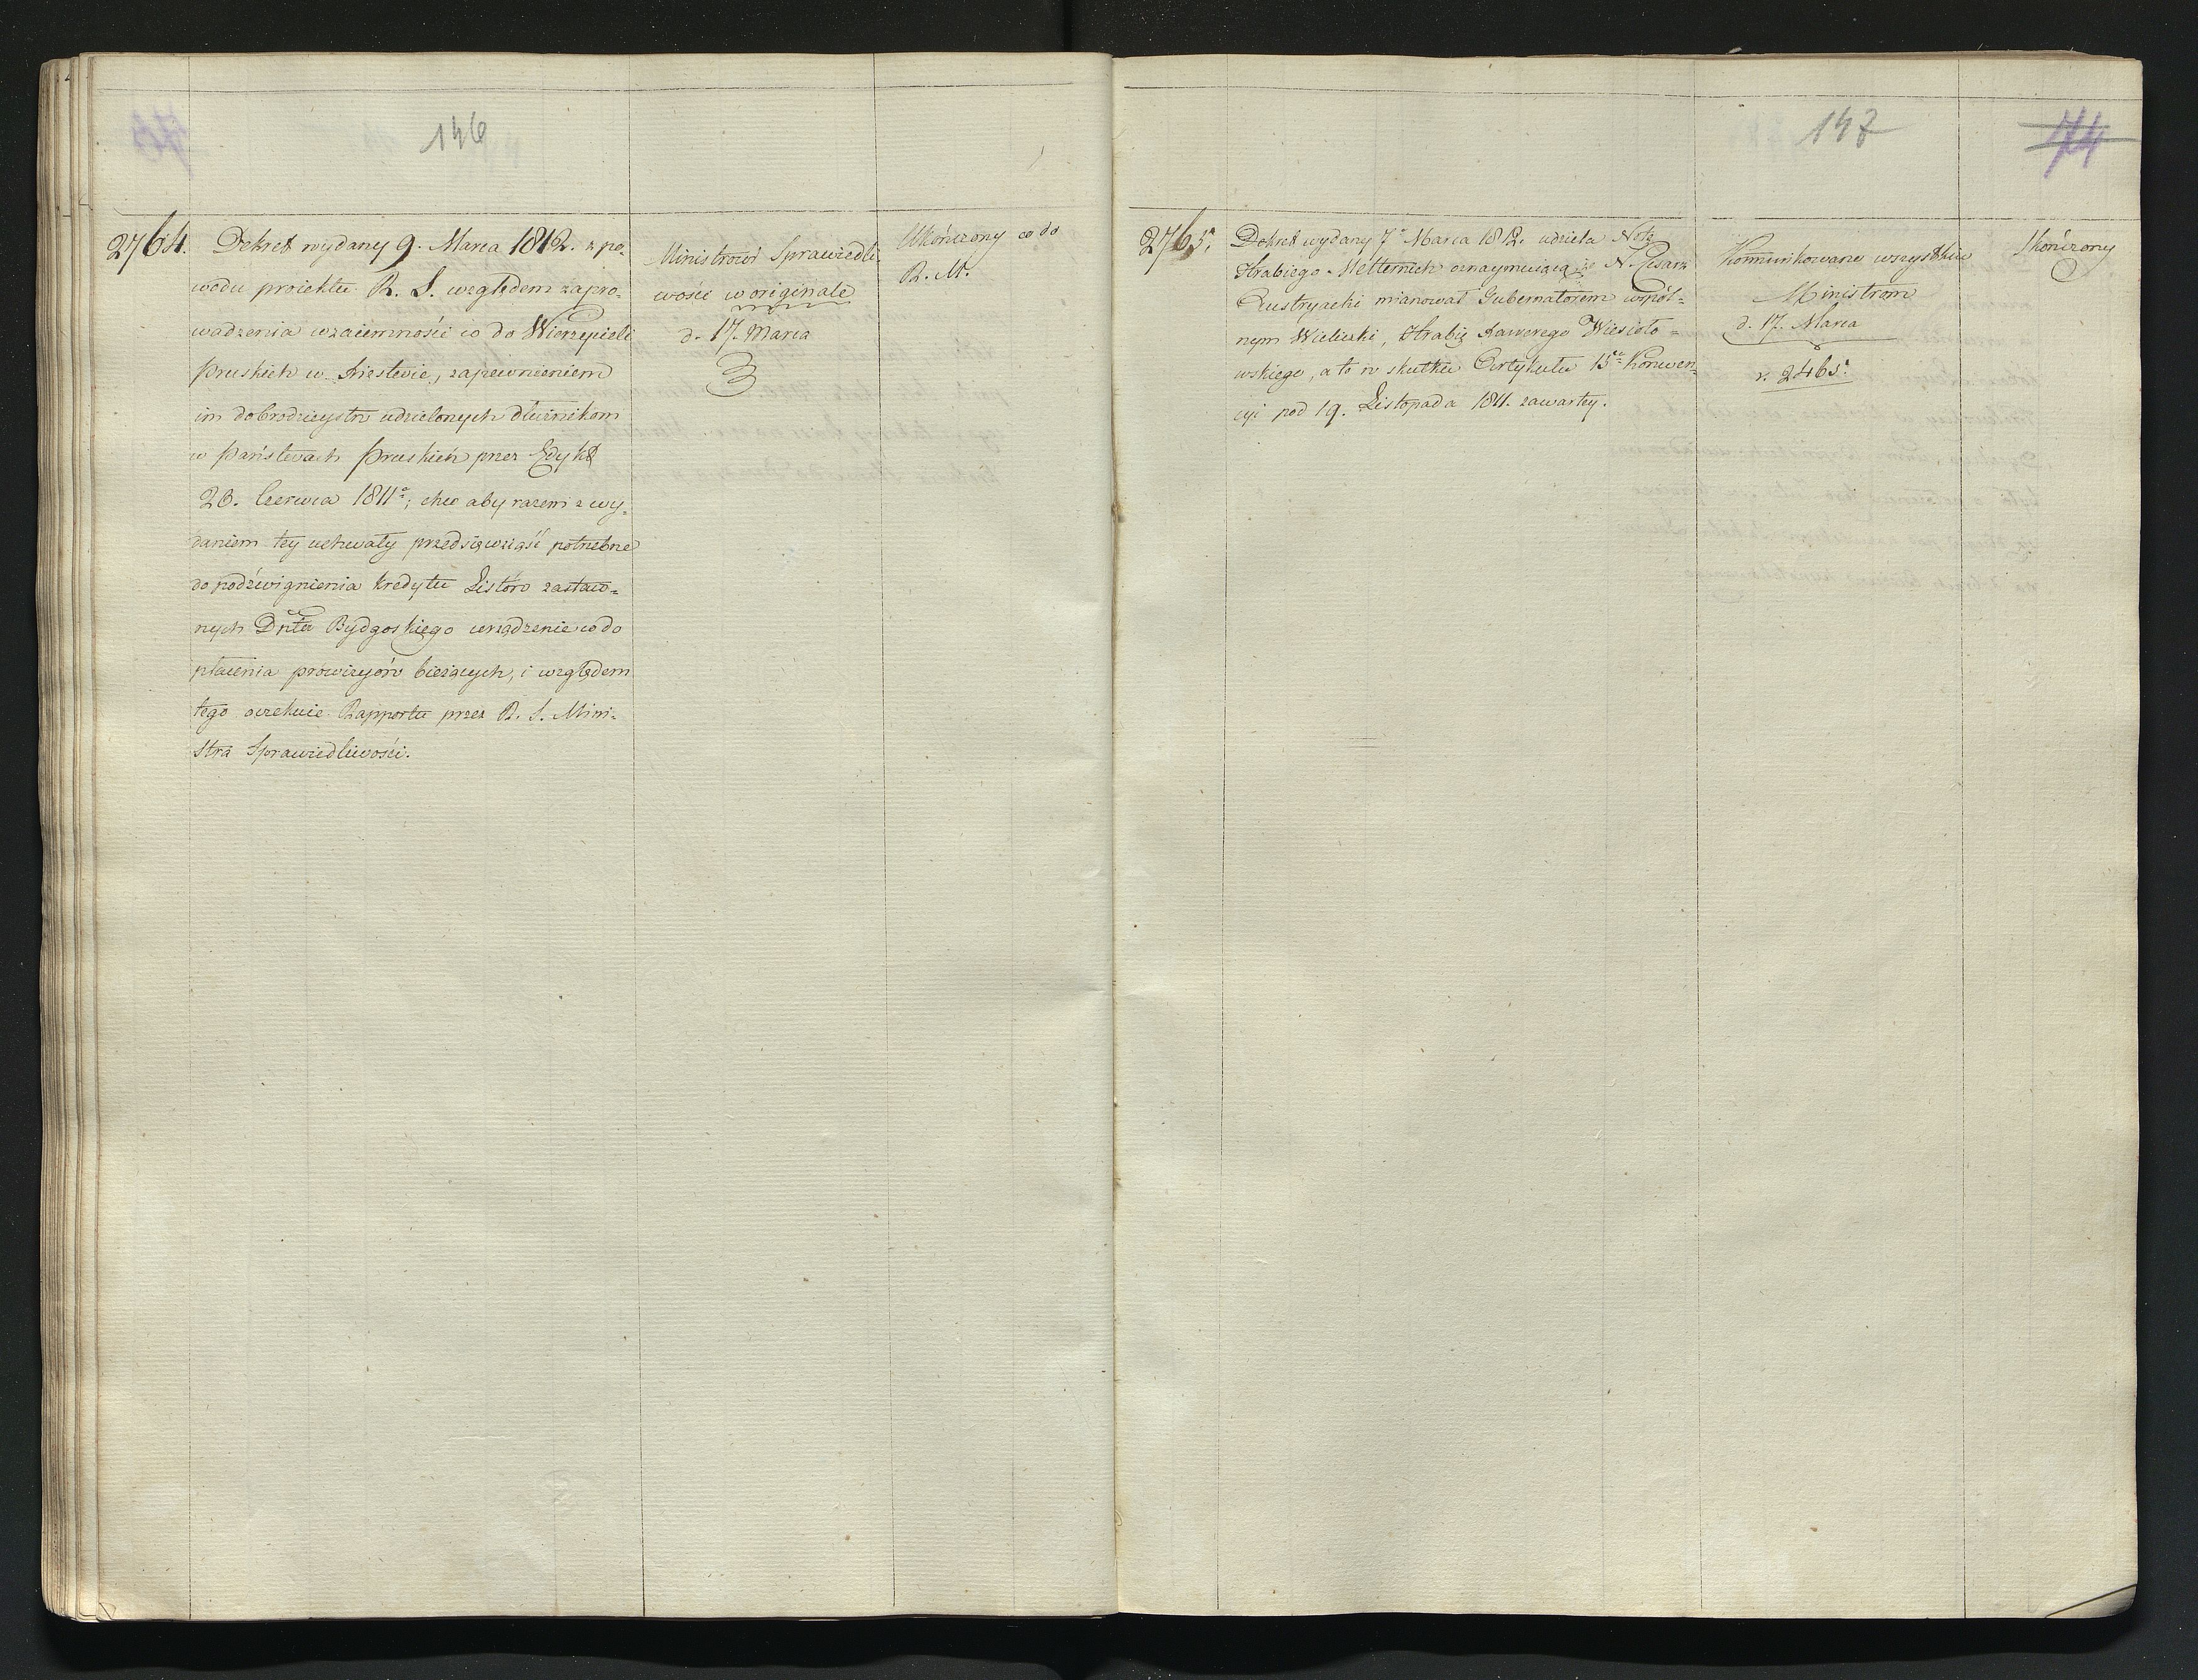 146
2764.
Dekret wydany 9. Marca 1812. z po-
wodu proiektu R. S. względem zapro-
wadzenia wzaiemności co do Wierzycieli
Pruskich w Xięstwie, zapewnieniem
im dobrodzieystw udzielonych dłużnikom
w Państwach Pruskich przez Edykt
20. Czerwca 1811º; chce aby razem z wy-
daniem tey uchwały przedsięwziąść potrzebne
do podźwignienia kredytu Listów zastaw=
nych Dpttu Bydgoskiego urządzenie co do
płacenia prowizyów bieżących, i względem
tego oczekuie Rapportu przez R. S. Mini-
stra Sprawiedliwości.
Ministrowi Sprawiedli-
wości w originale
d. 17. Marca
Ukończony co do
R. M.
147
74
2765.
Dekret wydany 7º Marca 1812. udziela Notę
Hrabiego Metternich oznaymuiącą iż N. Cesarz
Austryacki mianował Gubernatorem wspól=
nym Wieliczki, Hrabię Xawerego Wiesioło=
wskiego, a to w skutku Artykułu 15º Konwen=
cyi pod 19. Listopada 1811. zawartey.
Kommunikowane wszystkim
Ministrom
d. 17. Marca
v. 2465.
Skończony